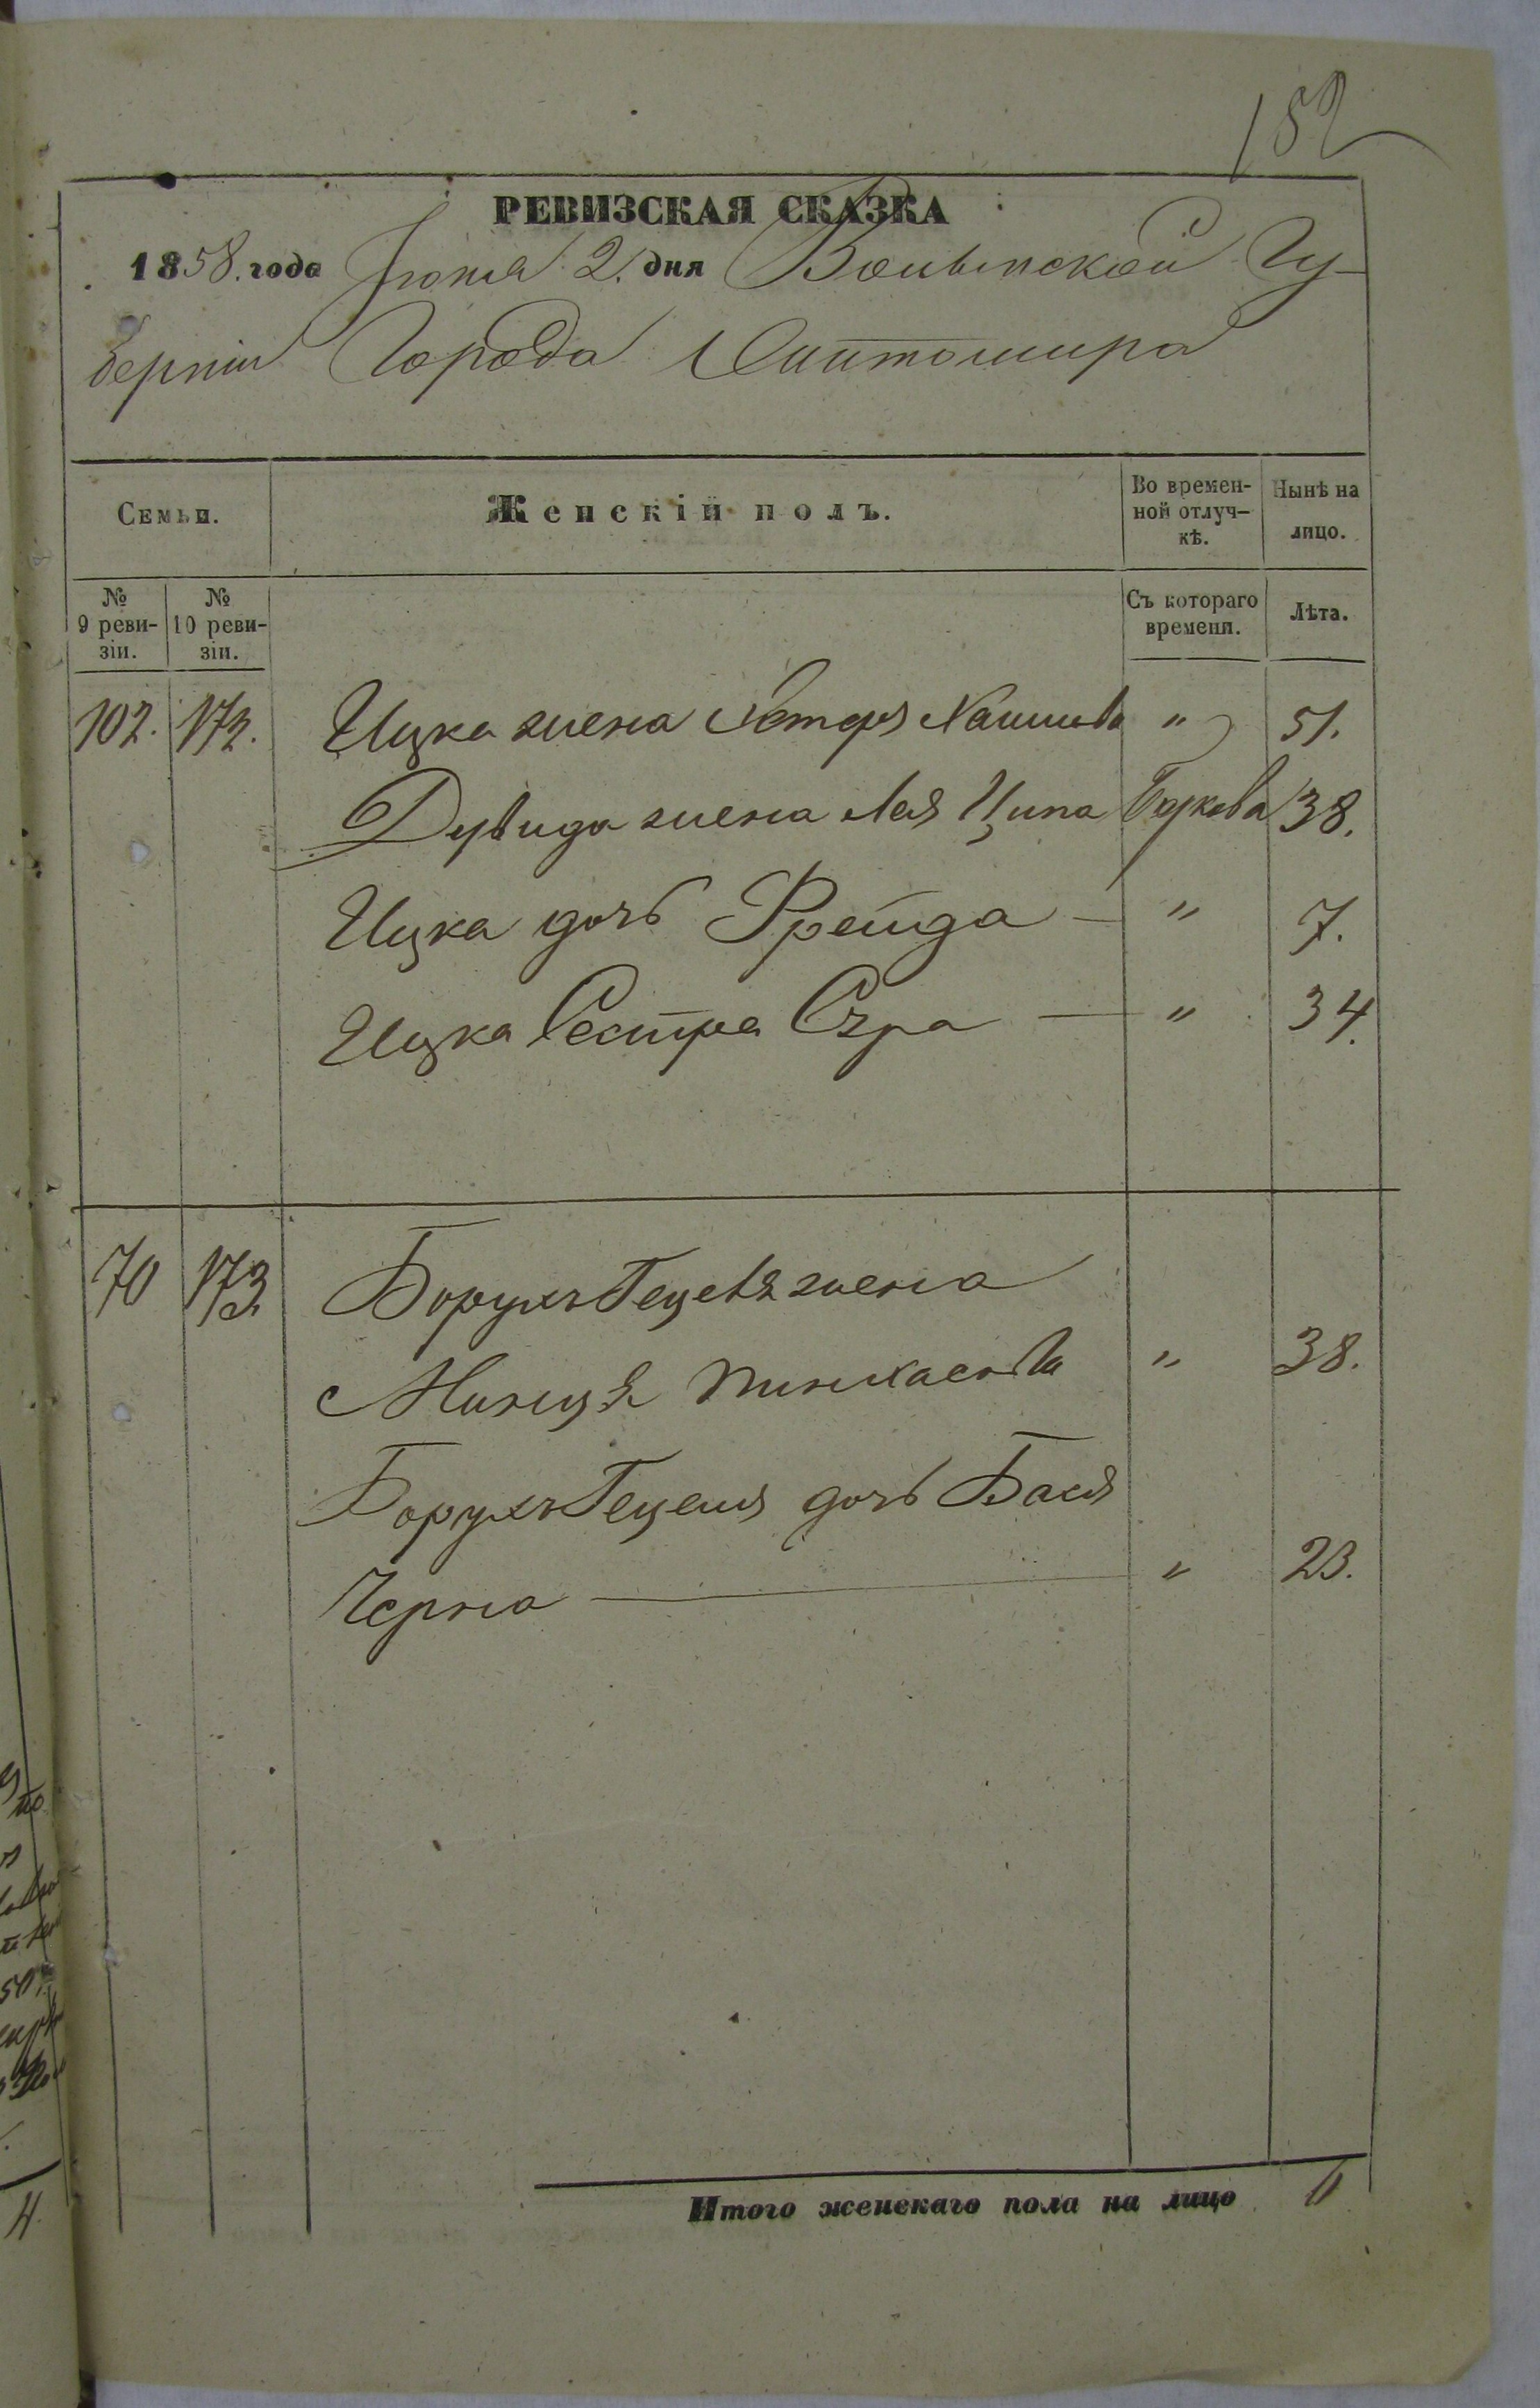 152
РЕВИЗСКАЯ СКАЗКА
1858. года Іюня 2. дня Волынской Гу-
берніи Города Житомира
Семьи. Женскій полъ. Во времен-ной отлуч-кѣ. Нынѣ на лицо.
№ 9 реви-зіи. № 10 реви-зіи. Съ котораго времени. Лѣта.
102. 172. Ицка жена Хаимова " 51.
Дувида жена Лея Ципа Беркова 38.
Ицка дочь Фрейда — " 7.
Ицка Сестра Сура — " 34.
70 173. Борухъ Гецеля жена
Минця Пинхасова " 38.
Борухъ Гецеля дочь Бася
Черна — " 23.
Итого женскаго пола на лицо 6